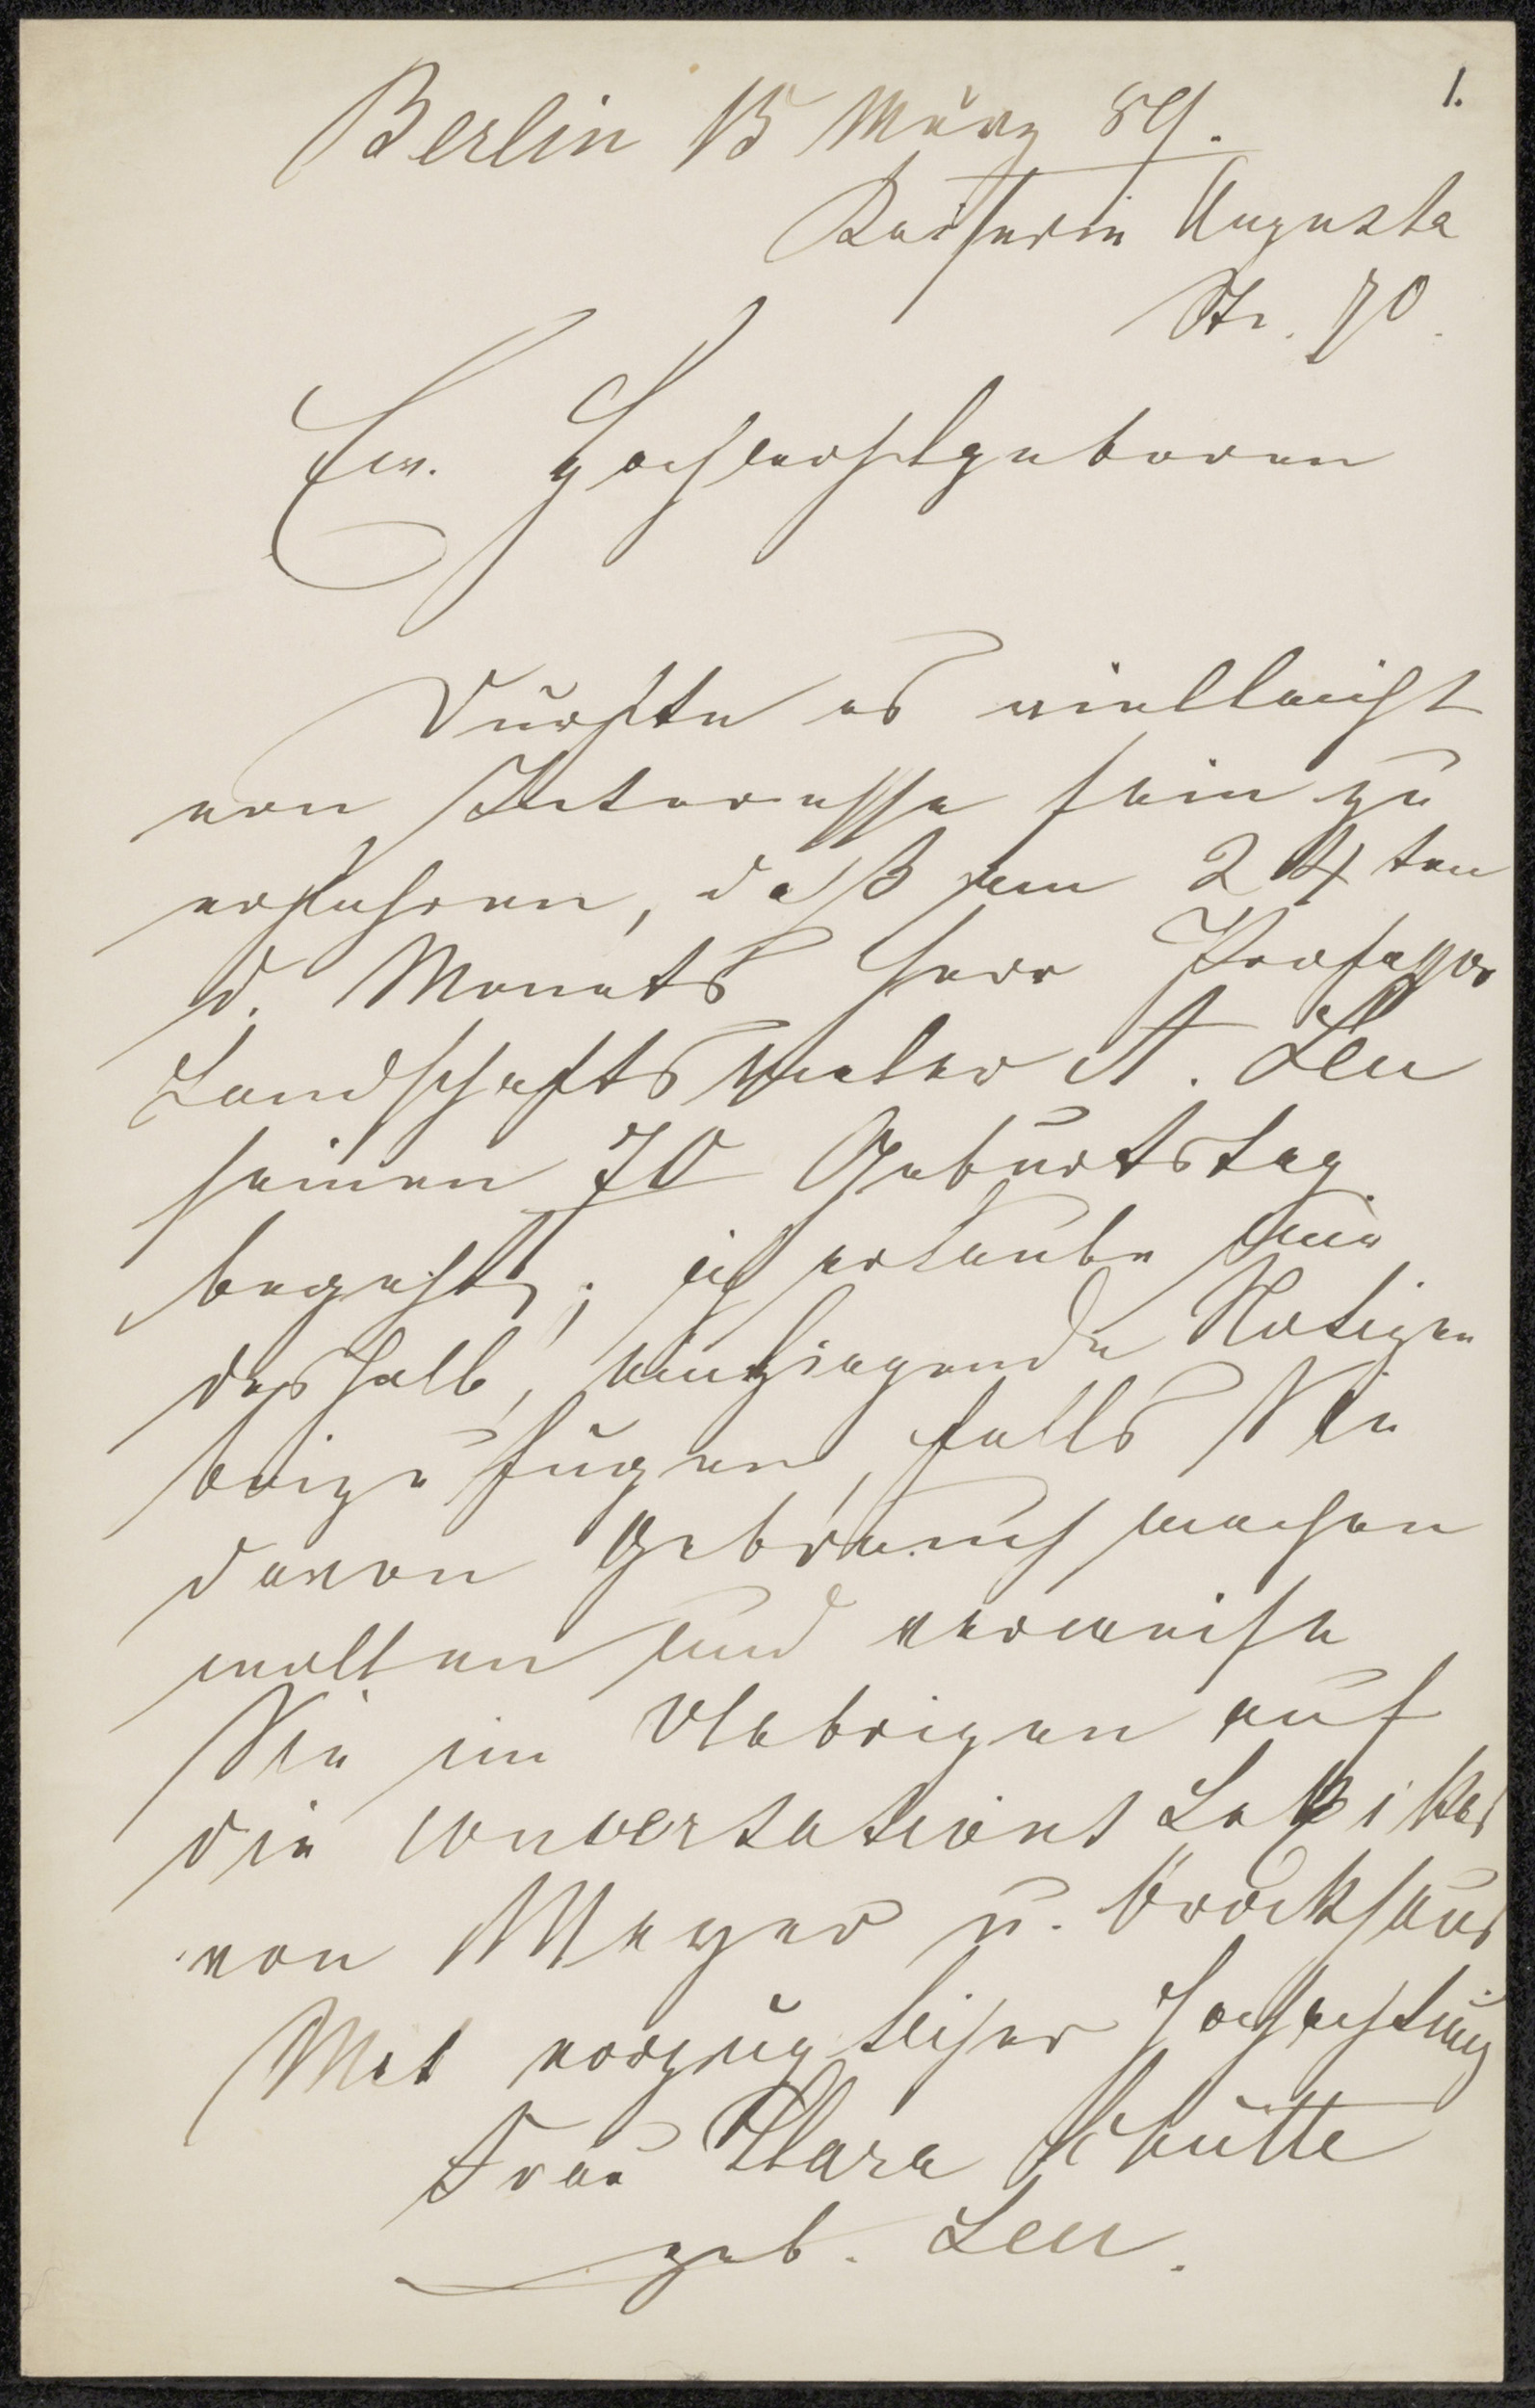 1.
Berlin 15 März 89.
Kaiserin Augusta
Str. 70.
Ew. Hochwohlgeboren
Dürfte es vielleicht
von Interesse sein zu
erfahren, daß am 24ten
d. Monats Herr Professor
Landschaftsmaler A. Leu
seinen 70 Geburtstag
begeht; ich erlaube mir
deshalb, einliegende Notizen
beizufügen, falls Sie
davon Gebrauch machen
wollen und verweise
Sie im Uebrigen auf
die Conversations Lexikas
von Meyer u. Brockhaus
Mit vorzüglicher Hochachtung
Frau Clara Schütte
geb. Leu.